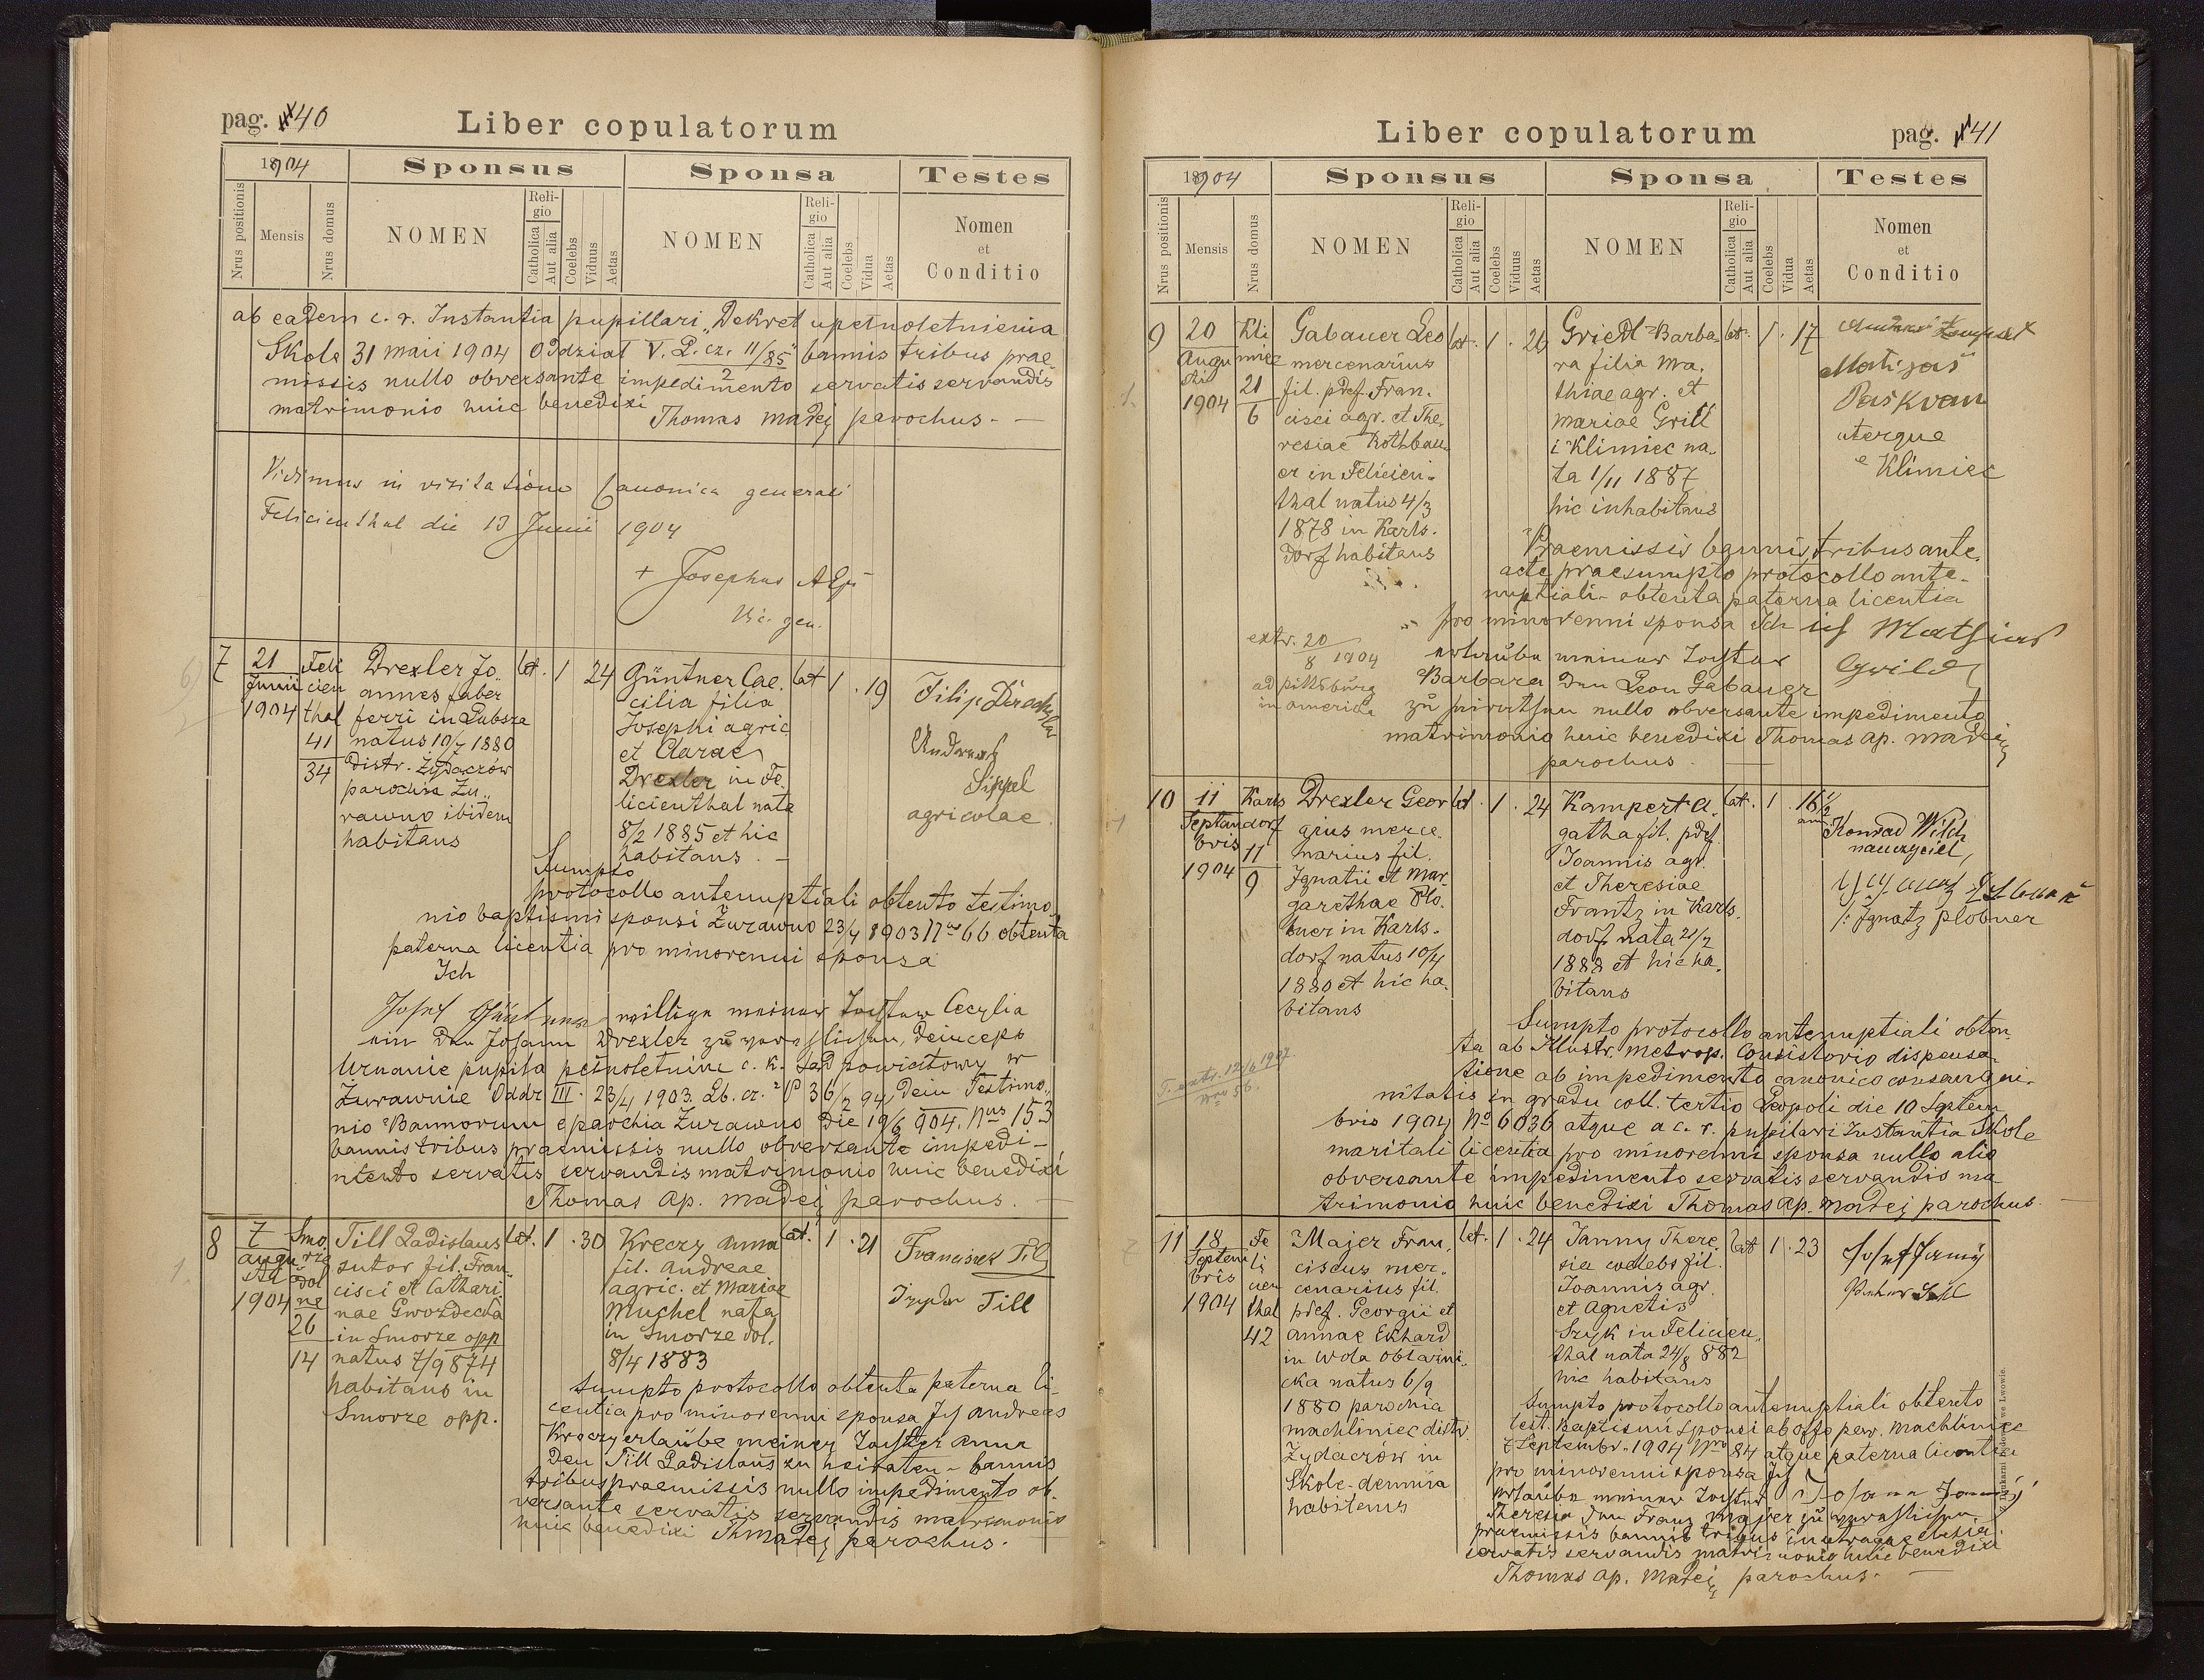 pag. 40
Liber copulatorum
1904
Sponsus
Sponsa
Testes
Nrus positionis
Mensis
Nrus domus
NOMEN
Religio
Catholica
Aut alia
Coelebs
Viduus
Aetas
NOMEN
Religio
Catholica
Aut alia
Coelebs
Vidua
Aetas
Nomen
et
Conditio
ab eadem c. r. Instantia pupillari „Dekret upełnoletnienia
Skole 31 maii 1904 Oddział V. L. cz. 11/85 bannis tribus prae
2
missis nullo obversante impedimento servatis servandis
matrimonio huic benedixi
Thomas Madej parochus. —
Vidimus in visitatione Canonica generali
Felicienthal die 13 Junii 1904
+ Josephus
Vic. gen.
7
21
Junii
1904
Feli
cien
thal
41
34
Drexler Jo
annes faber
ferri in Lubsza
natus 10/7 1880
distr. Żydaczów
parochia Żu„
rawno ibidem
habitans
lat. 1 24
Güntner Cae.
cilia filia
Josephi agric
et Clarae
Drexler in Fe.
licienthal nata
8/2 1885 et hic
habitans. —
lat 1 . 19
Filip
Andreas
Sippel
agricolae
Sumpto
protocollo antenuptiali obtento testimo
nio baptismi sponsi Żurawno 23/4 1903 Nus 66 obtenta
paterna licentia pro minorenni sponsa
Ich
Josef Güntner willige meiner Tochter Cecylia
ein den Johann Drexler zu verehlichen, deinceps
Uznanie pupila pełnoletnim c. k. Sąd powiatowy w
Żurawnie Oddz III. 23/4 1903. Lb. cz. P 36/2 94, dein Testimo„
nio Bannorum e parochia Żurawno die 19/6 904. Nus 153
bannis tribus praemissis nullo obversante impedi-
mento servatis servandis matrimonio huic benedixi
Thomas Ap. Madej parochus. —
8
7
Augu
sti
1904
Smo
rze
dol
ne
26
14
Till Ladislaus
sutor fil. Fran
cisci et Cathari.
nae Gwozdecka
in Smorze opp
natus 7/9 874
habitans in
Smorze opp.
lat. 1 . 30
Kreczy Anna
fil. Andreae
agric. et Mariae
Muchel nata
in Smorze dol.
8/4 1883
lat. 1 . 21
Franciszek Til
Till
Sumpto protocollo obtenta paterna li-
centia pro minorenni sponsa Ich Andreas
Kreczy erlaube meiner Tochter Anna
den Till Ladislaus zu heiraten – bannis
tribus praemissis nullo impedimento ob.
versante servatis servandis matrimonio
huic benedixi Th Madej parochus.
Liber copulatorum
pag. 41
1904
Sponsus
Sponsa
Testes
Nrus positionis
Mensis
Nrus domus
NOMEN
Religio
Catholica
Aut alia
Coelebs
Viduus
Aetas
NOMEN
Religio
Catholica
Aut alia
Coelebs
Vidua
Aetas
Nomen
et
Conditio
9
20
Augu
sti
1904
Kli
miec
21
6
Gabauer Leo
mercenarius
fil. pdef. Fran.
cisci agr. et The.
resiae Rothbau
er in Felicien.
thal natus 4/3
1878 in Karls.
dorf habitans
lat. 1 . 26
Griedl Barba
ra filia Ma.
thiae agr. et
Mariae Grill
i Klimiec na.
ta 1/11 1887
hic inhabitans
lat. 1 . 17
Matijas
Paskvan
uterque
e Klimiec
Praemissis bannis tribus ante
acte praesumpto protocollo ante-
nuptiali obtenta paterna licentia
pro minorenni sponsa Ich ich Mathias
erlaube meiner Tochter
Barbara den Leon Gabauer
zu heirathen nullo obversante impedimento
matrimonio huic benedixi Thomas Ap. Madej
parochus. —
extr. 20/8 1904
ad Pittsburg
in America
10
11
Septem
bris
1904
Karls
dorf
11
9
Drexler Geor
gius merce.
narius fil.
Ignatii et Mar.
garethae Plo.
bner in Karls.
dorf natus 10/4
1880 et hic ha.
bitans
lat. 1 . 24
Kampert A.
gatha fil. pdef.
Joannis agr.
et Theresiae
Frantz in Karls.
dorf nata 21/2
1888 et hic ha.
bitans
lat. 1 . 16 1/2
an.
Konrad Wilch
nauczyciel,
/: Ignatz Plobner
Sumpto protocollo antenuptiali obten.
ta ab Illustr. Metrop. Consistorio dispensa.
tione ab impedimento canonico consangui.
nitatis in gradu coll. tertio Leopoli die 10 Septem
bris 1904 No 6036 atque a c. r. pupilari Instantia Skole
maritali licentia pro minorenni sponsa nullo alio
obversante impedimento servatis servandis ma
trimonio huic benedixi Thomas Ap. Madej parochus.
T. extr. 12/6 1907.
Nro 56.
11
18
Septem
bris
1904
Fe
li
cien
thal
42
Majer Fran.
ciscus mer.
cenarius fil.
pdef. Georgii et
Annae Ekhard
in Wola Obłazni.
cka natus 6/9
1880 parochia
Machliniec distr.
Żydaczów in
Skole-demnia
habitans
lat. 1 . 24
Janny There.
sia coelebs fil.
Joannis agr.
et Agnetis
Szyk in Felicien.
thal nata 24/8 882
hic habitans
lat 1 . 23
Josef Janny
Sumpto protocollo antenuptiali obtento
test. Baptismi sponsi ab offo par. Machliniec
7 Septembr. 1904 Nro 84 atque paterna licentia
pro minorenni sponsa Ich Johann Janny
erlaube meiner Tochter
Theresia den Franz Majer zu verehlichen.
praemissis bannis tribus in utraque ecclesia
servatis servandis matrimonio huic benedixi
Thomas Ap. Madej parochus. —